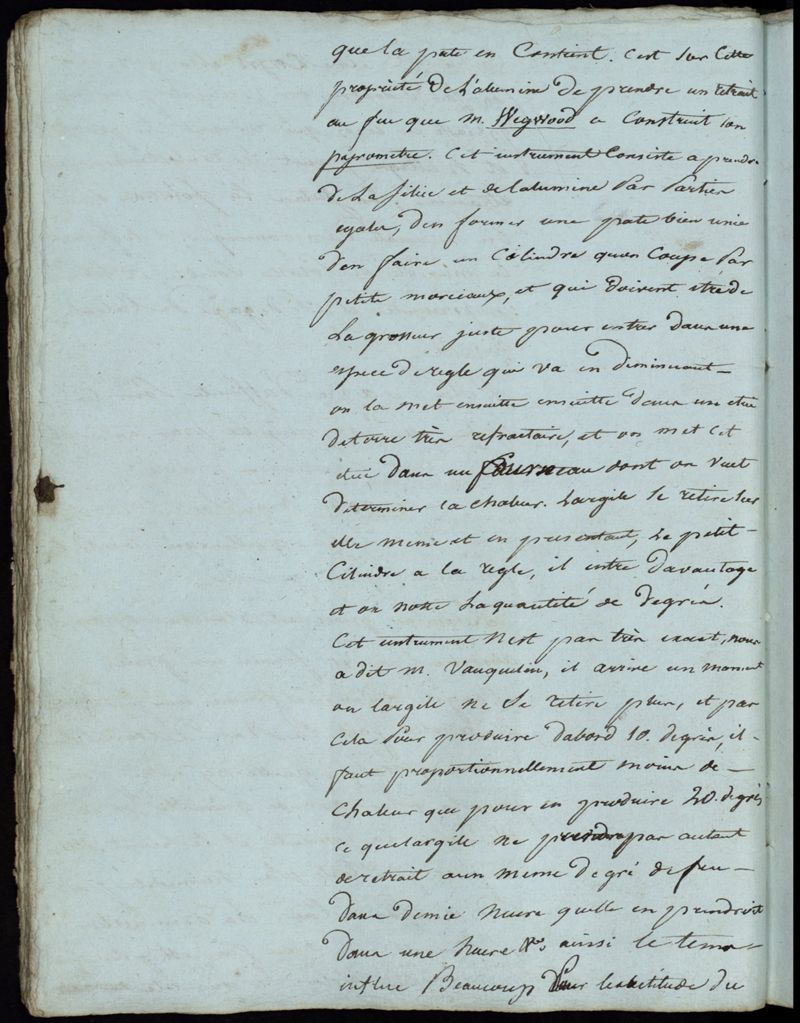 que la pate en Contient. C'est sur Cette
propriété de L'alumine de prendre un retrait
au feu que m. Wegwood a Construit son
pyrometre. Cet instrument Consiste a prendre
de La Silice et de lalumine Par Parties
egales, den former une pate bien unie
den faire un Cilindre quon Coupe Par
petits morceaux, et qui doivent être de
La grosseur juste pour entrer dans une
espece de regle qui va en diminuant
on la met ensuitte ensuitte dans un etui
de terre très refractaire, et on met cet
etui dans un fourneau dont on veut
determiner la chaleur. Largile se retire sur
elle meme et en presentant, Le petit
Cilindre a la regle, il entre davantage
et on notte La quantité de degrés.
Cet instrument n'est pas très exact, nous
a dit m. Vauquelin, il arrive un moment
ou largile ne se retire plus, et par
Cela Pour produire dabord 10. degrés, il
faut proportionnellement moins de
Chaleur que pour en produire 20. degrés
ce que largile ne prendre pas autant
de retrait a un meme degré de feu
dans demie heure quelle en prendroit
dans une heure &c. aussi le tems
influe Beaucoup Pour lexactitude du